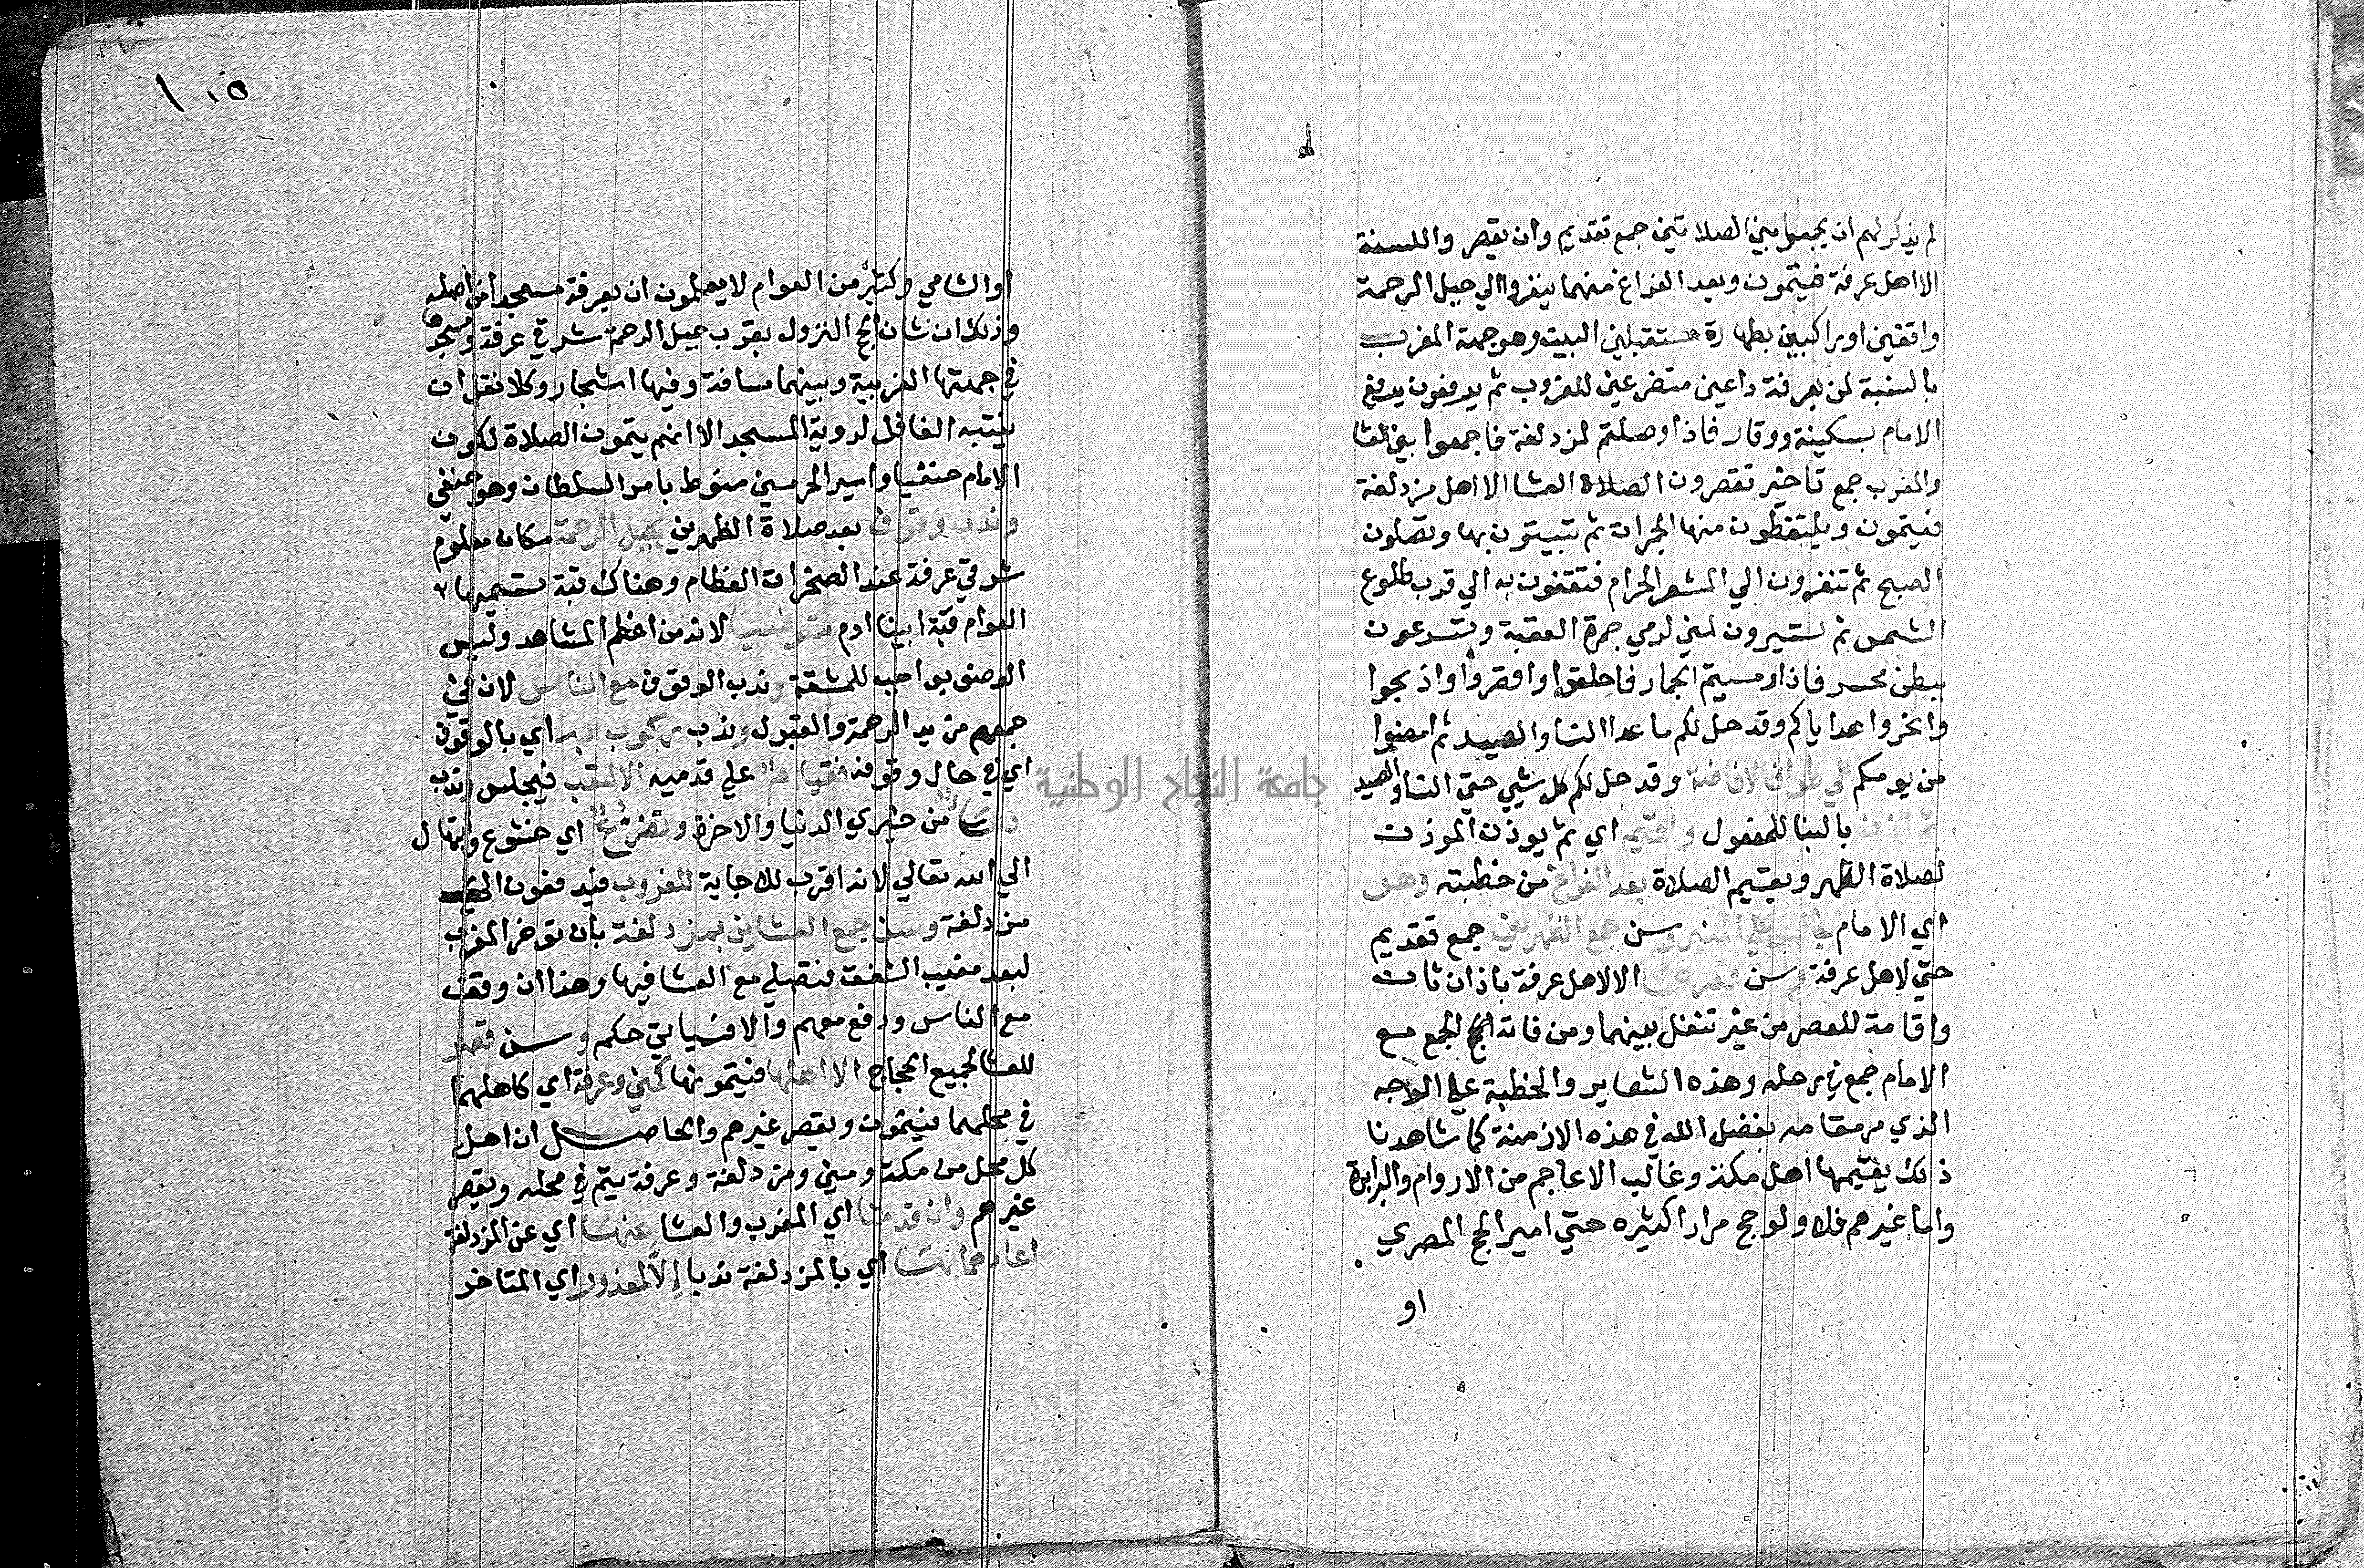 لم يذكر لهم ان يجمعوا بين الصلاتين جمع تقديم وان يقصروا للسنة
الا اهل عرفة فيتمون وبعد الفراغ منهما ينفروا الي جبل الرحمة
واقفين او راكبين بطهارة مستقبلين البيت وهو جهة المغرب
بالنسبة لمن بعرفة داعين متضرعين للغروب ثم يدفعون بدفع
الامام بسكينة ووقار فاذا وصلتم لمزدلفة فاجمعوا بين العشا
والمغرب جمع تاخير تقصرون الصلاة العشا الا اهل مزدلفة
فيتمون ويلتقطون منها الجمرات ثم تبيتون بها وتصلون
الصبح ثم تنفرون الي المشعر الحرام فتقفون به الي قرب طلوع
الشمس ثم تسيرون لمني لرمي جمرة العقبة وتسرعون
ببطن محسر فاذا رميتم الجمار فاحلقوا او اقصروا واذبحوا
وانحروا هداياكم وقد حل لكم ماعدا النسا والصيد ثم امضوا
من يومكم الي طواف الافاضة وقد حل لكم كل شي حتي النسا والصيد
ثم اذن بالبنا للمفعول واقيم اي ثم يوذن الموذن
لصلاة الظهر ويقيم الصلاة بعد الفراغ من خطبته وهو
اي الامام جالس علي المنبر وسن جمع الظهرين جمع تقديم
حتي لاهل عرفة وسن قصرهما الا لاهل عرفة باذان ثان
واقامة للعصر من غير تنفل بينهما ومن فاته الجمع مع
الامام جمع في رحله وهذه الشعاير والخطبة علي الوجه
الذي مر مقامه بفضل الله في هذه الازمنة كما شاهدنا
ذلك يقيمها اهل مكة وغالب الاعاجم من الاروام والبرابرة
واما غيرهم فلا ولو حج مرارا كثيره حتي امير الحج المصري
او
١٠٥
او الشامي وكثير من العوام لا يعلمون ان بعرفة مسجدا من اصله
وذلك ان شان الحج النزول بقرب جبل الرحمة شرقي عرفة ومسجدها
في جهتها الغربية وبينهما مسافة وفيها اشجار وكلا نقل ان
ينتبه الغافل لروية المسجد الا انهم يتمون الصلاة لكون
الامام حنفيا وامير الحرمين منوط بامر السلطان وهو حنفي
وندب وقوف بعد صلاة الظهرين بجبل الرحمة مكان معلوم
شرقي عرفة عند الصخرات العظام وهناك قبة تسميها
العوام قبة ابينا ادم متوضيا لانه من اعظم المشاهد وليس
الوضو بواجب للمشقة وندب الوقوف مع الناس لان في
جمعهم مزيد الرحمة والقبول وندب ركوب به اي بالوقوف
اي في حال وقوفه فقيام علي قدميه الا لتعب فيجلس وندب
دعا من خيري الدنيا والاخرة وتضرع اي خشوع وابتهال
الي الله تعالي لانه اقرب للاجابة للغروب فيدفعون الي
مزدلفة وسن جمع العشاين بمزدلفة بان توخر المغرب
لبعد مغيب الشفق فتصلي مع العشا فيها وهذا ان وقف
مع الناس ودفع معهم والا فسياتي حكمه وسن قصر
للعشا لجميع الحجاج الا اهلها فيتمونها كمني وعرفة اي كاهلهما
في محلهما فيتمون ويقصر غيرهم والحاصل ان اهل
كل محل من مكة ومني ومزدلفة وعرفة يتم في محله ويقصر
غيرهم وان قدمتا اي المغرب والعشا عنها اي عن المزدلفة
اعادهما بها اي بالمزدلفة ندبا الا لمعذور اي المتاخر
جامعة النجاح الوطنية